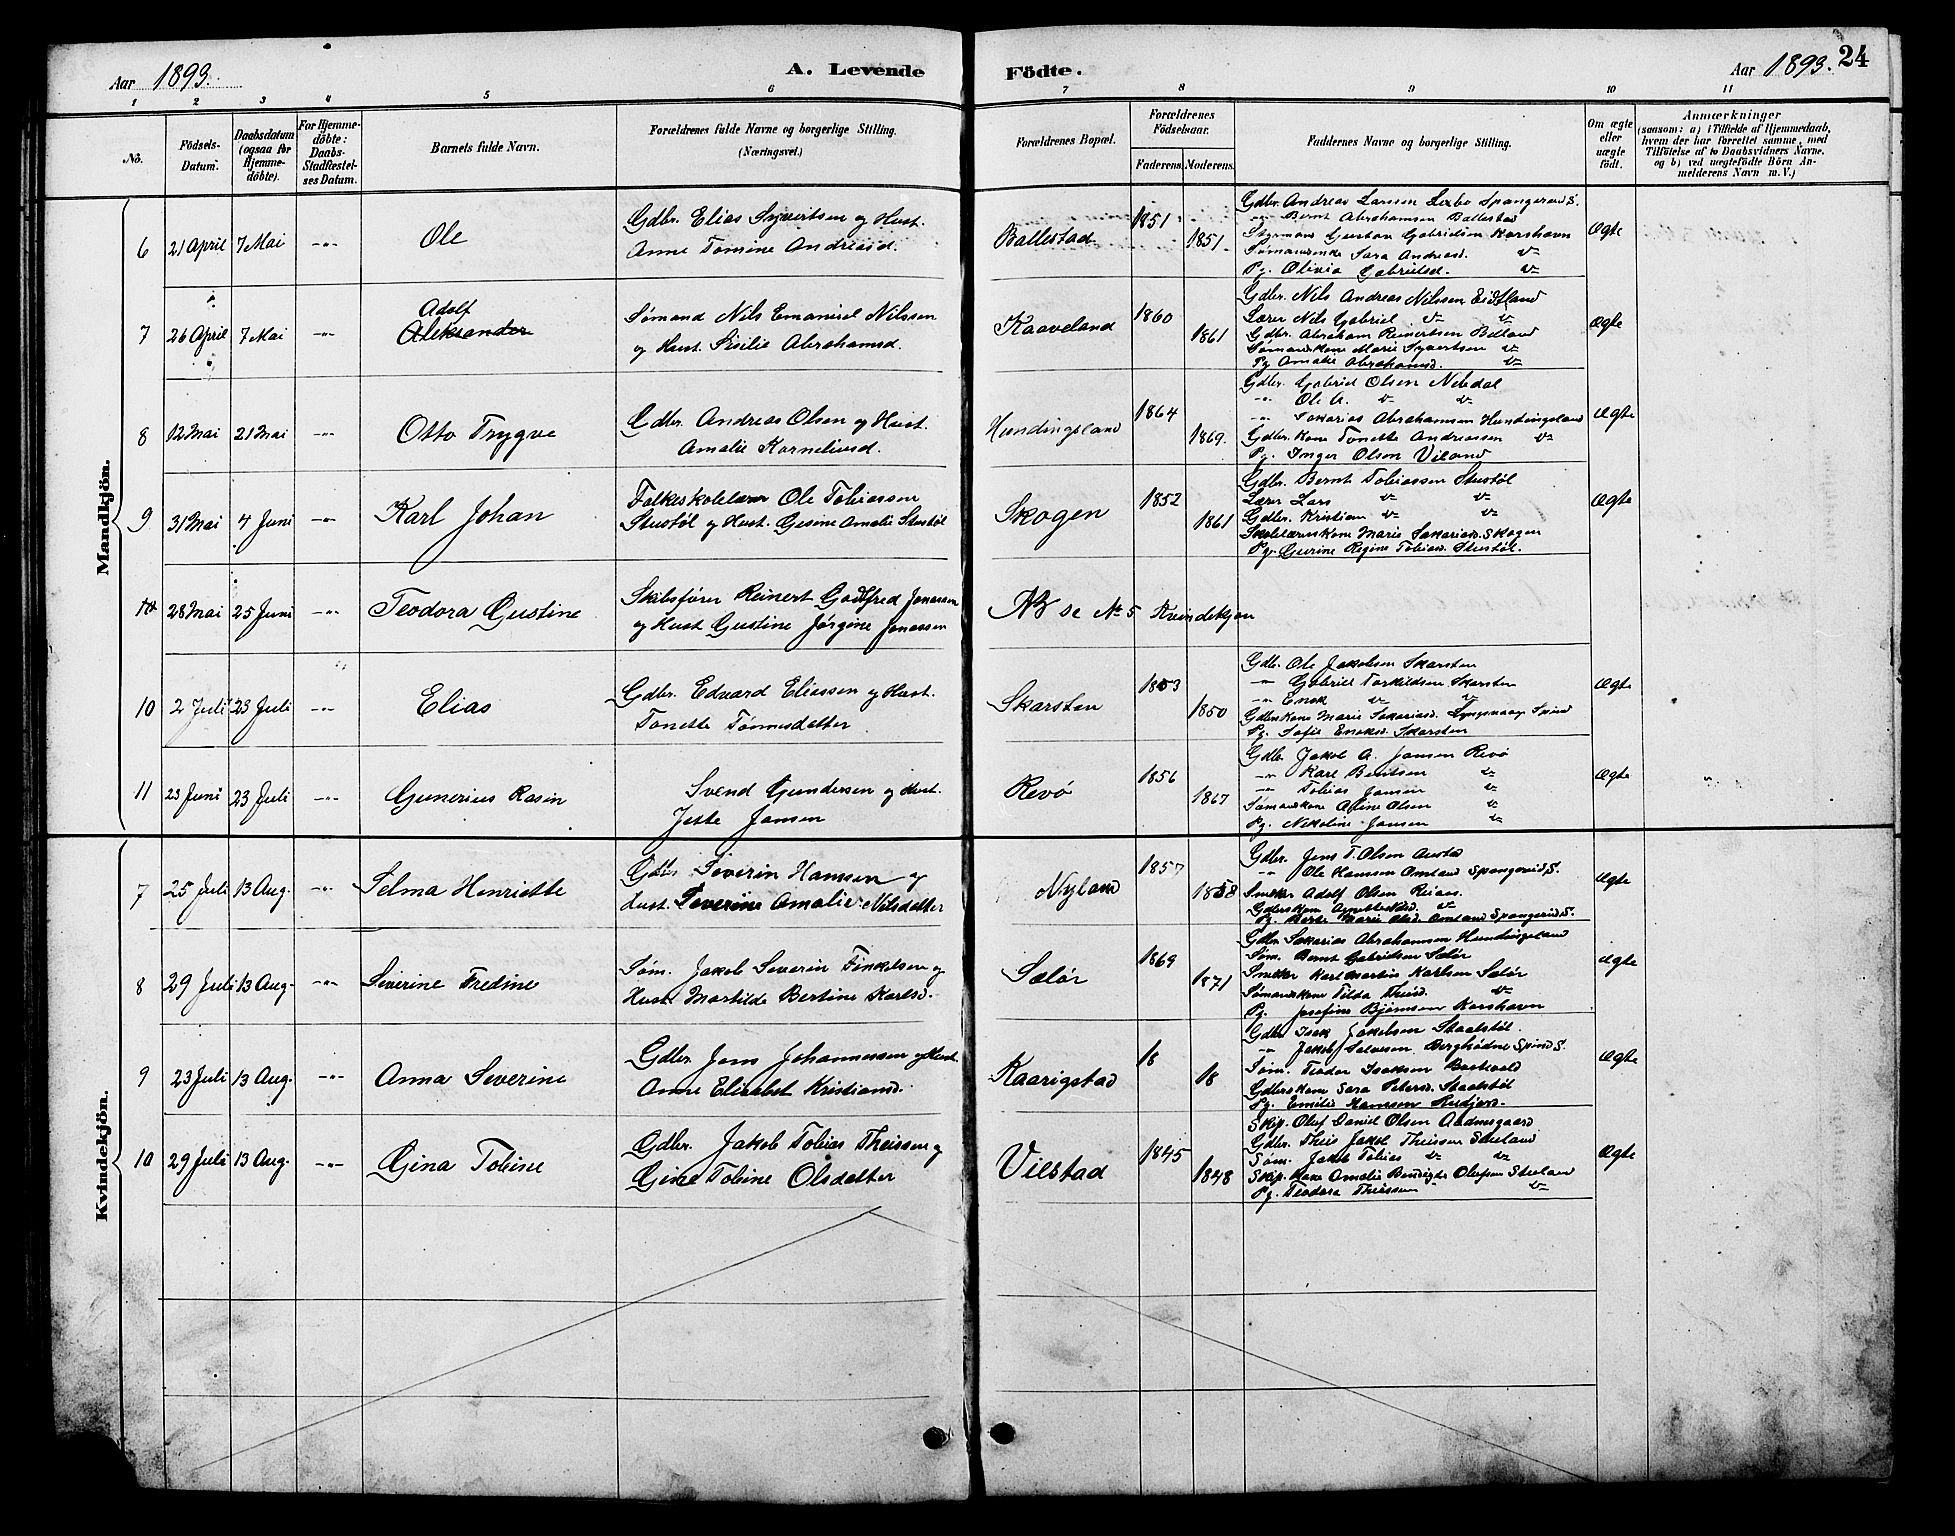 Aar 1893.
A. Levende
Födte.
Aar 1893. 24
1 2 3 4 5 6 7 8 9 10 11
No.
Födsels-
Datum.
Daabsdatum
(ogsaa for
Hjemme-
döbte).
For Hjemme-
döbte:
Daabs-
Stadfæstel-
ses Datum.
Barnets fulde Navn.
Forældrenes fulde Navne og borgerlige Stilling.
(Næringsvei.)
Forældrenes Bopæl.
Forældrenes
Födselsaar.
Faderens. Moderens.
Faddernes Navne og borgerlige Stilling.
Om ægte
eller
uægte
födt.
Anmærkninger
(saasom: a) i Tilfælde af Hjemmedaab,
hvem der har forrettet samme, med
Tilföielse af to Daabsvidners Navne.
og b) ved uegtefödte Börn An-
melderens Navn m. V.)
Mandkjön.
6 21 April 7 Mai -"- Ole
Gdbr. Elias Syvertsen og Hust.
Anne Tomine Andreasd.
Ballestad 1851 1851.
Gdbr. Andreas Larsen Spangereid S.
-"- Bernt Abrahamsen Ballestad
Styrmand Gustav Gabrielsen Korshavn
Sømandsenke Sara Andreasd. -v-
Pg. Olivia Gabrielsd. -v-
Ægte
7 26 April 7 Mai -"- Adolf
Aleksander
Sømand Nils Emanuel Nilssen
og Hust. Sisilie Abrahamsd.
Kaaveland 1860 1861
Gdbr. Nils Andreas Nilssen
Lærer Nils Gabriel -v- -v-
Gdbr. Abraham Reinertsen
Sømandskone Marie Syvertsen -v-
Pg. Amalie Abrahamsd. -v-
Ægte
8 12 Mai 21 Mai -"- Otto Trygve
Gdbr. Andreas Olsen og Hust.
Amalie Korneliusd.
Hundingsland 1864 1869.
Gdbr. Gabriel Olsen Nebdal
-"- Ole A. -v- -v-
-"- Sakarias Abrahamsen Hundingsland
Gdbr. Kone Tonette Andreassen -v-
Pg. Inger Olsen Viland
Ægte
9 31 Mai 4 Juni -"- Karl Johan
Folkeskolelærer Ole Tobiassen
Stustøl og Hust. Gesine Amalie Stustøl
Skogen 1852 1861
Gdbr. Bernt Tobiassen Stustøl
Lærer Lars -v- -v-
Gdbr. Kristian -v- -v-
Skolelærerskone Marie Sakariasd. Skogen
Pg. Gurine Regine Tobiasd. Stustøl.
Ægte
10 28 Mai 25 Juni -"- Teodora Gustine
Skibsfører Reinert Godtfred Jonassen
og Hust Gustine Jørgine Jonassen
NB se No 5 Kvindekjøn
10 2 Juli 23 Juli -"- Elias
Gdbr. Edvard Eliassen og Hust.
Tonette Tønnesdatter
Skarsten 1853 1850
Gdbr. Ole Jakobsen Skarsten
-"- Gabriel Torkildsen Skarsten
-"- Enok -v-
Gdbrskone Marie Sakariasd. Spind
Pg. Sofie Enoksd. Skarsten
Ægte
11 23 Juni 23 Juli -"- Gunerius Rasin
Svend Gundersen og Hust.
Jette Jansen
Revø 1856 1867
Gdbr. Jakob A. Jansen Revø
-"- Karl Berntsen -v-
-"- Tobias Jansen -v-
Sømandskone Oline Olsen -v-
Pg. Nikoline Jansen -v-
Ægte
Kvindekjön.
7 25 Juli 13 Aug. -"- Selma Henriette
Gdbr. Severin Hansen og
Hust. Severine Amalie Nilsdatter
Nyland 1857 1858
Gdbr. Jens T. Olsen Austad
-"- Ole Hansen Amland Spangereid S.
Snekker Adolf Olsen
Gdbrskone -v-
Pg. Berte Marie Olsd. Amland Spangereid S.
Ægte
8 29 Juli 13 Aug. -"- Severine Fredine
Søm. Jakob Severin Finkelsen og
Hust. Martilde Bertine Karlsd.
Sælør 1869 1871
Gdbr. Sakarias Abrahamsen Hundingsland
Søm. Bernt Gabrielsen Sælør
Snekker Karl Martin Karlsen Sælør
Sømandskone Tilda Theisd. -v-
Pg. Josefine Bjørnsen Korshavn
Ægte
9 23 Juli 13 Aug. -"- Anna Severine
Gdbr. Jens Johannessen og Hust.
Anne Elisabet Kristiansd.
Kaarigstad 18 18
Gdbr. Isak Jakobsen Staalstøl.
-"- Jakob Salvesen Spind S.
Søm. Teodor Isaksen
Gdbrskone Sara Petersd. Staalstøl
Pg. Emilie Hansen
Ægte
10 29 Juli 13 Aug. -"- Gina Tobine
Gdbr. Jakob Tobias Theissen og
Gine Tobine Olsdatter
Vilstad 1845 1848
Skip. Oluf Daniel Olsen
Gdbr. Theis Jakob Theissen Stueland
Søm. Jakob Tobias -v- -v-
Skip. Kone Amalie Olufsen Stueland
Pg. Teodora Theissen -v-
Ægte